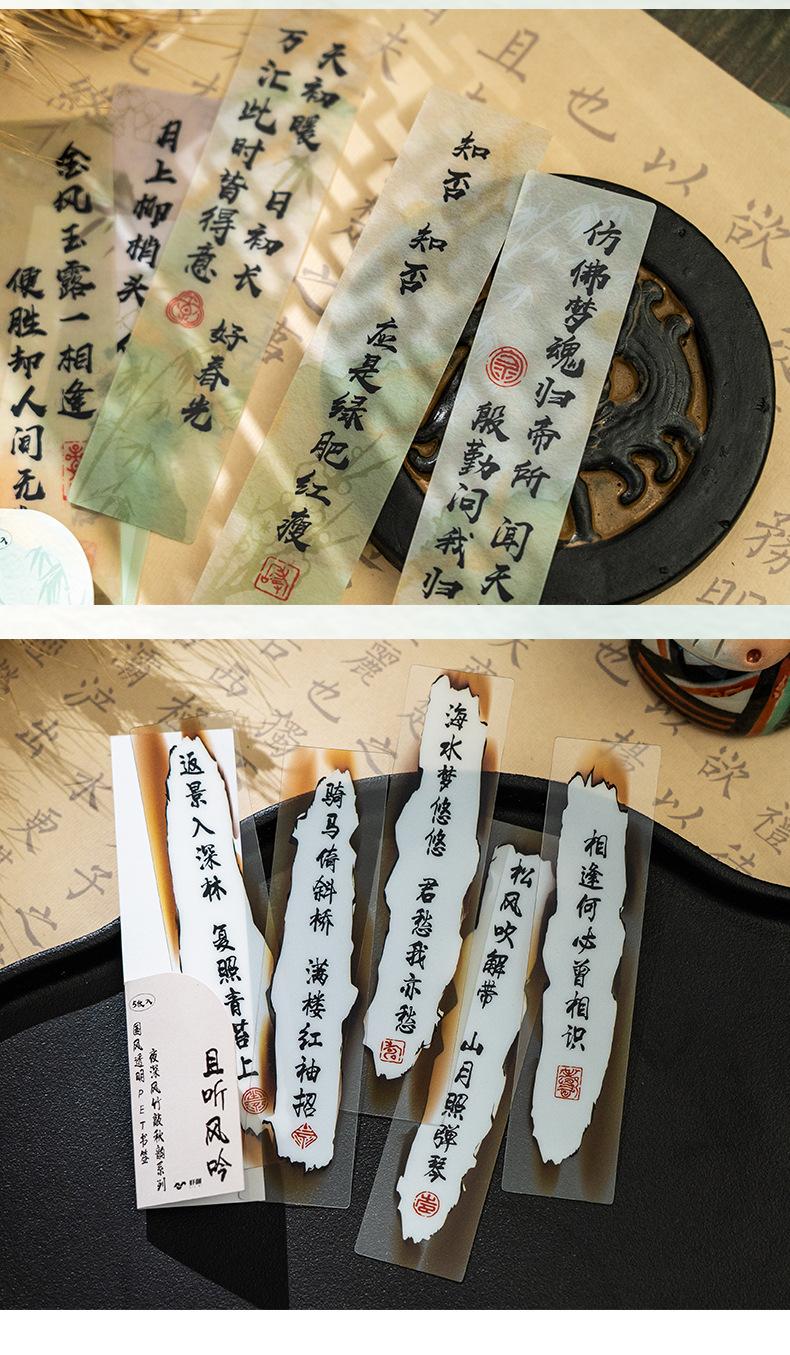 金风玉露一相逢
便胜却人间无
月上柳梢头
天初暖 日初长 好春光
万汇此时皆得意
知否 知否 应是绿肥红瘦
仿佛梦魂归帝所 闻天
殷勤问我归
且也以欲
返景入深林 复照青苔上
骑马倚斜桥 满楼红袖招
海水梦悠悠 君愁我亦愁
松风吹解带 山月照弹琴
相逢何必曾相识
5张入
且听风吟
夜深风竹敲秋韵系列
国风透明PET书签